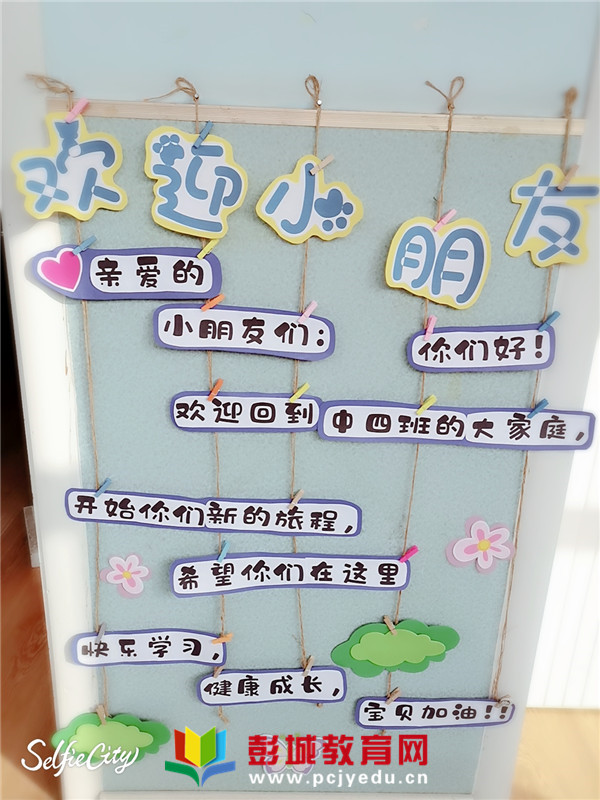 欢迎小朋友
亲爱的
小朋友们:
你们好!
欢迎回到中四班的大家庭,
开始你们新的旅程,
希望你们在这里
快乐学习,
健康成长,
宝贝加油!!
SelfieCity
彭城教育网
www.pcjyedu.cn